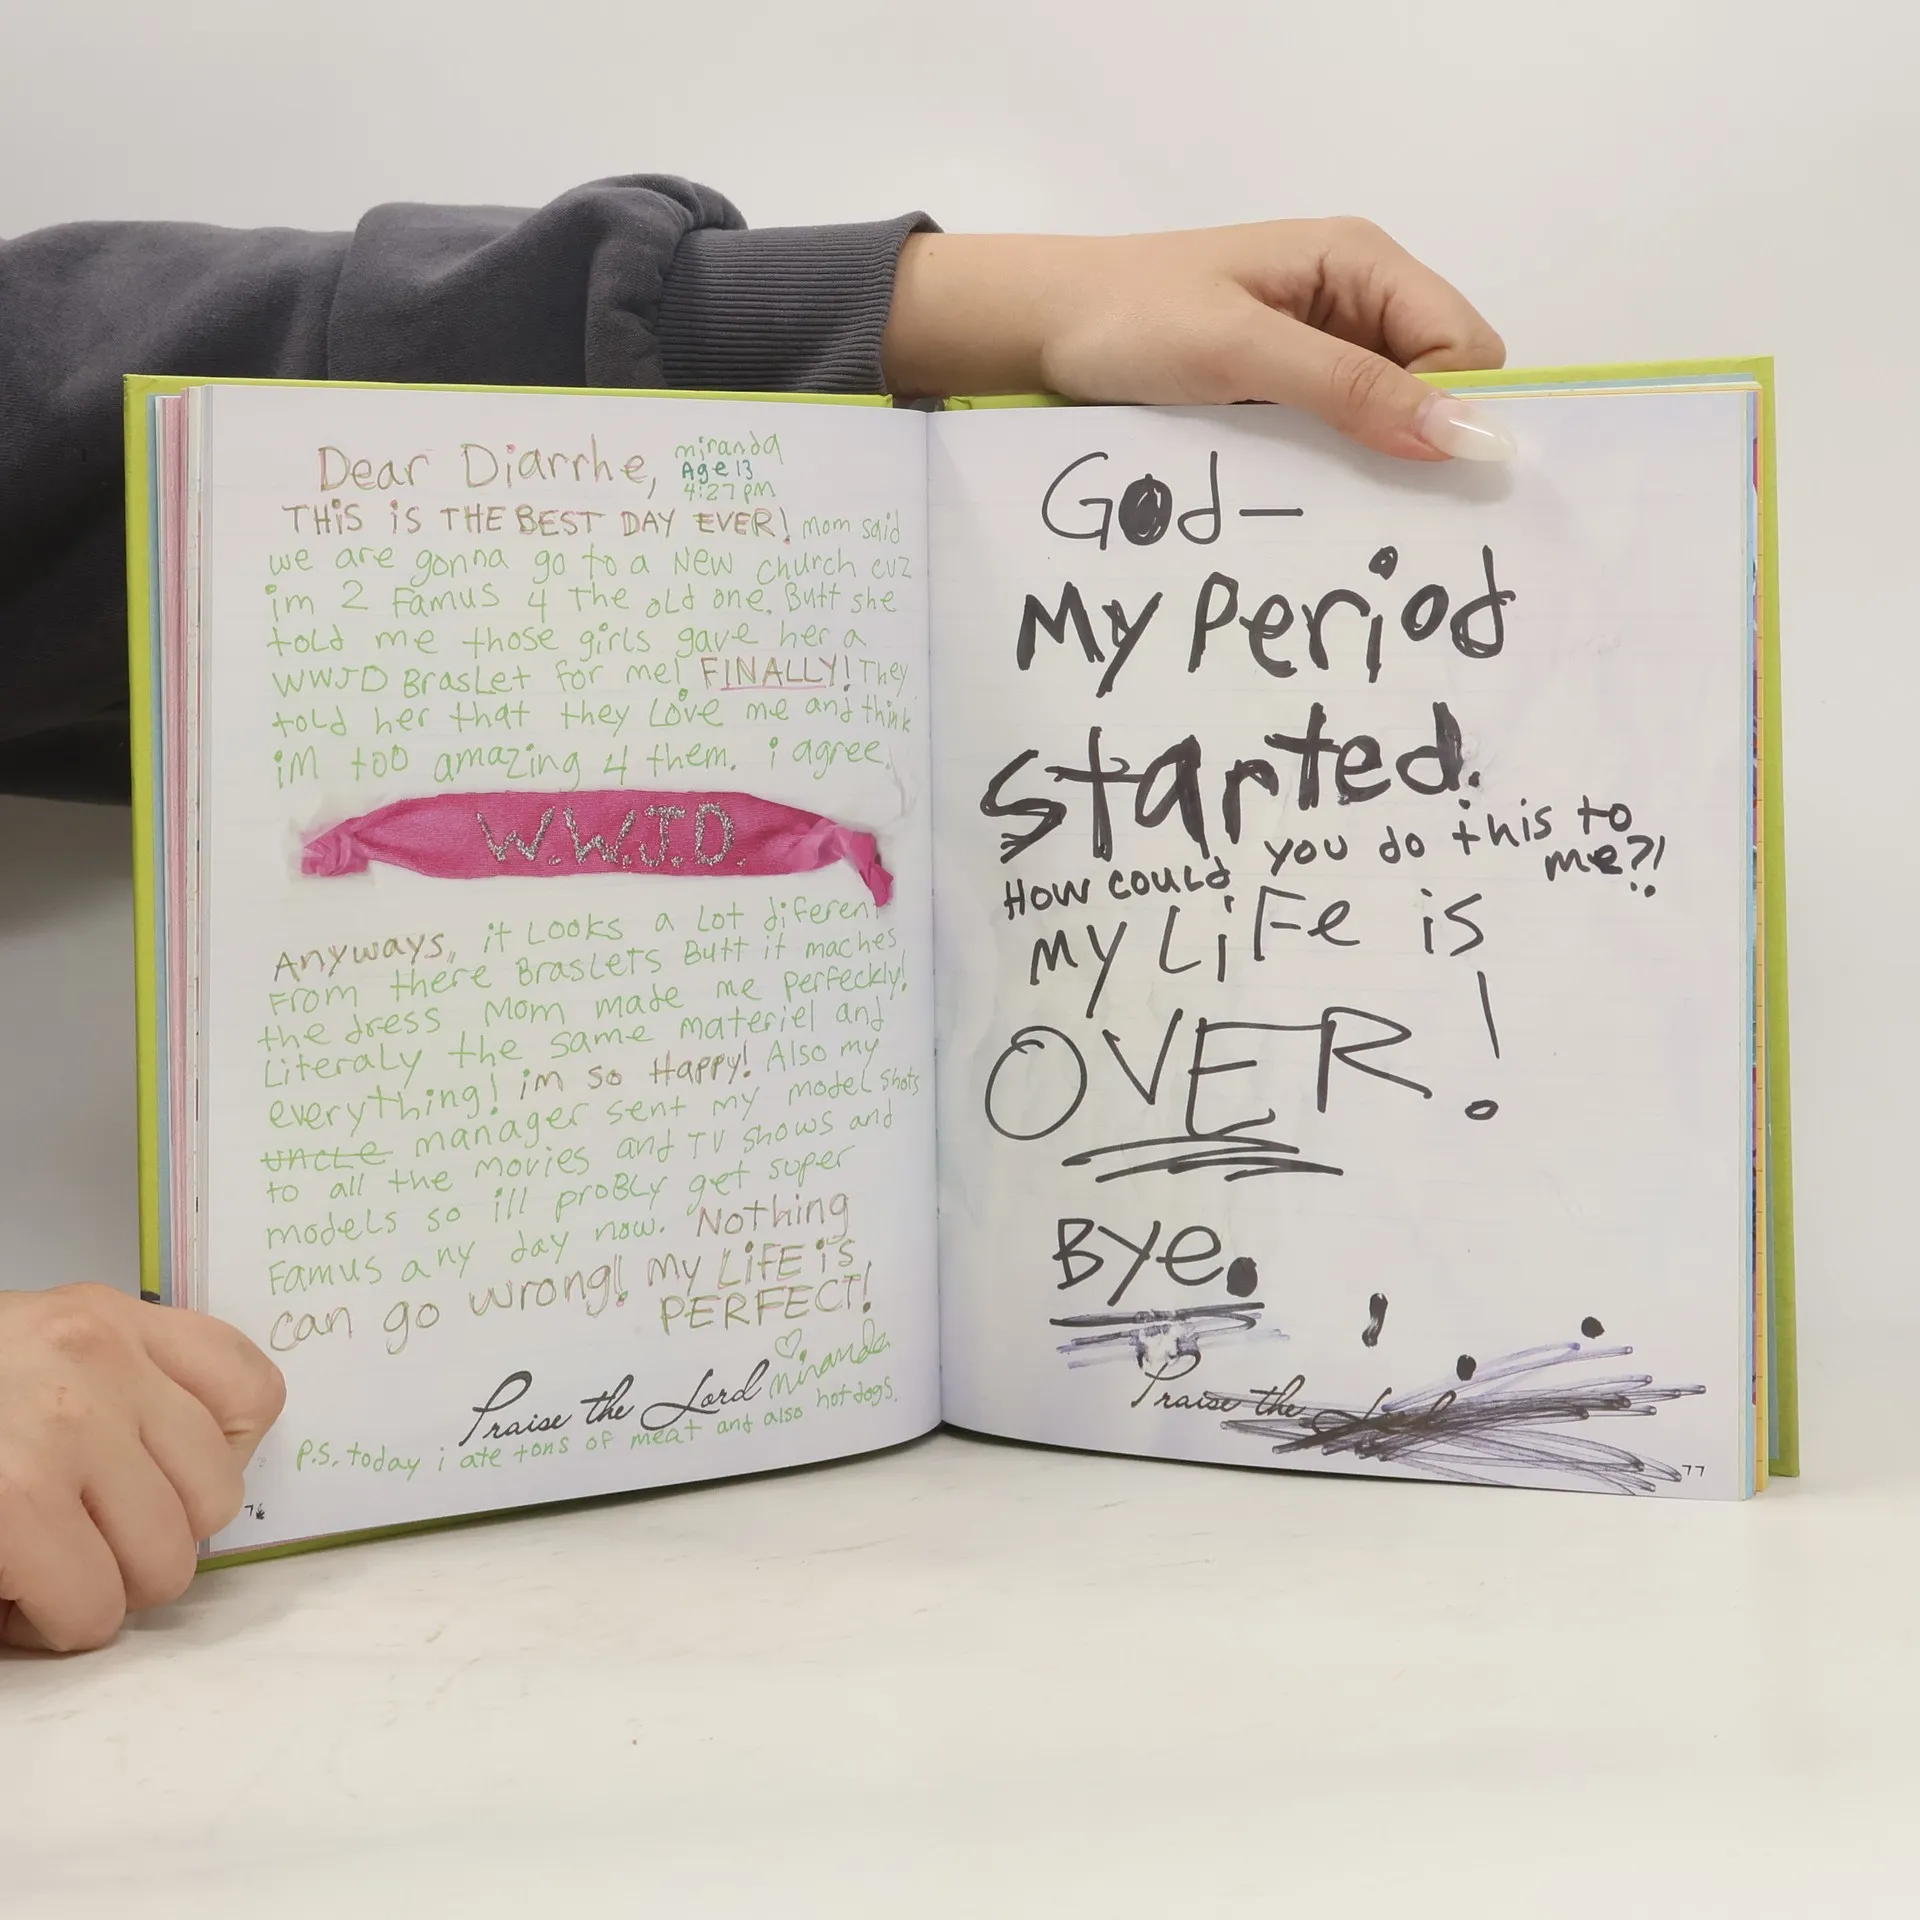 Dear Diarrhe,
miranda
Age 13
4:27 pm
THiS iS THE BEST DAY EVER! mom said
we are gonna go to a New church cuz
im 2 Famus 4 The old one. Butt she
told me those girls gave her a
WWJD BrasLet for me! FINALLY! They
told her that they Love me and think
iM too amazing 4 them. i agree.
W.W.J.D.
Anyways, it Looks a Lot diferent
From there BrasLets Butt it maches
the dress Mom made me perfeckly!
Literaly the same materiel and
everything! im so Happy! Also my
uncle manager sent my model shots
to all the movies and TV shows and
models so ill proBLy get super
Famus any day now. Nothing
can go wrong! my LiFE is
PERFECT!
Praise the Lord
miranda
P.S. today i ate tons of meat and also hotdogs.
God—
My Period
started.
How could you do this to
me?!
my LiFe is
OVER!
Bye.
Praise the Lord
77